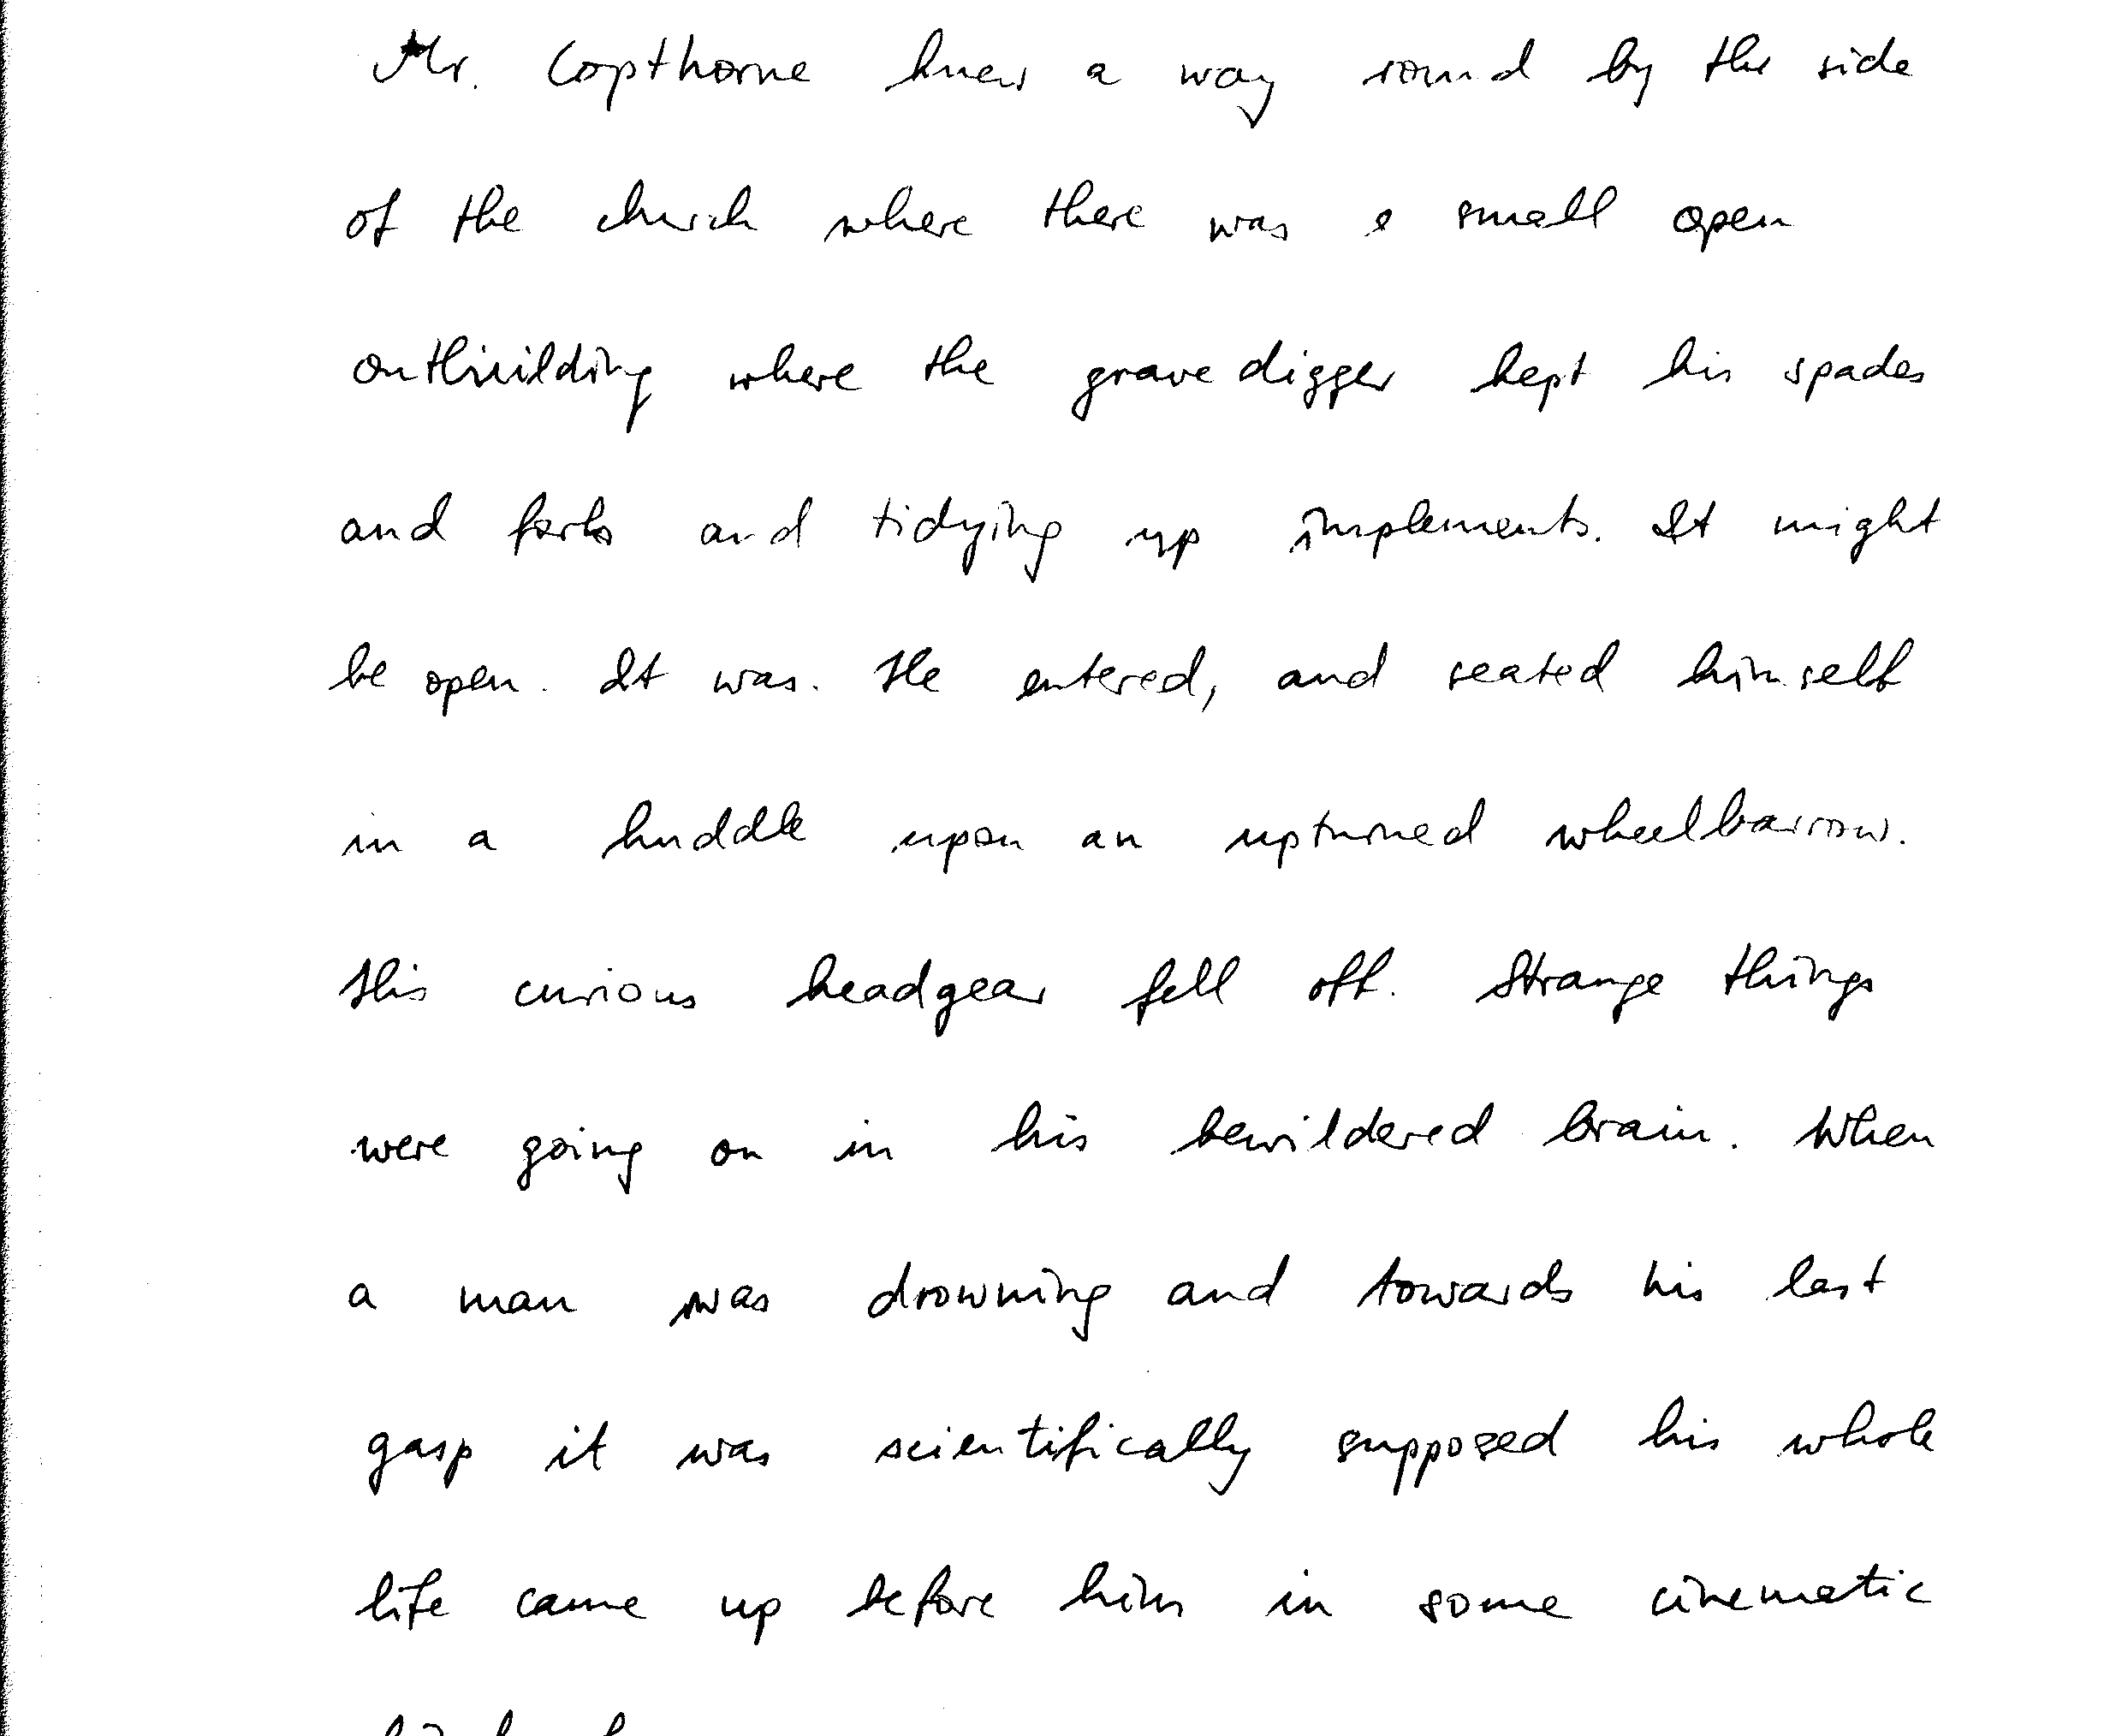 Mr. Copthorne knew a way round by the side
of the church where there was a small open
outbuilding where the gravedigger kept his spades
and forks and tidying up implements. It might
be open. It was. He entered, and seated himself
in a huddle upon an upturned wheelbarrow.
His curious headgear fell off. Strange things
were going on in his bewildered brain. When
a man was drowning and towards his last
gasp it was scientifically supposed his whole
life came up before him in some cinematic